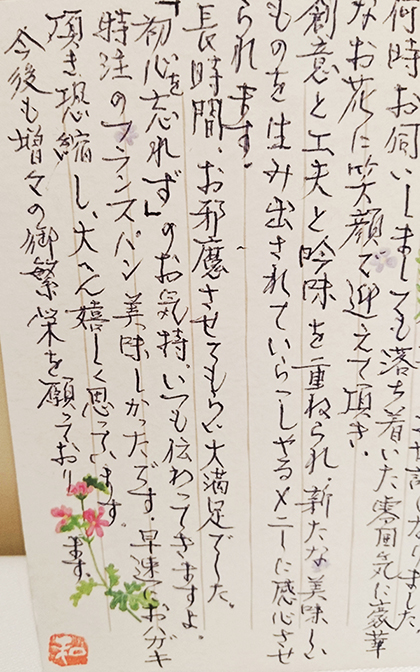 しました。
何時お伺いしましても落ち着いた雰囲気に豪華
なお花に笑顔で迎えて頂き、
創意と工夫と吟味を重ねられ、新たな美味しい
ものを生み出されていらっしゃるメニーに感心させ
られます。
長時間、お邪魔させてもらい大満足でした。
「初心を忘れず」のお気持、いつも伝わってきますよ。
特注のフランスパン美味しかったです。早速におハガキ
頂き恐縮し、大へん嬉しく思っています。
今後も増々の御繁栄を願っております。
和